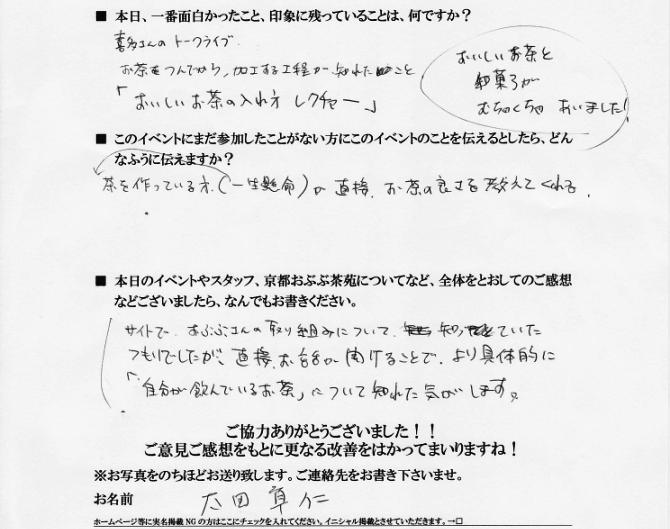 ■ 本日、一番面白かったこと、印象に残っていることは、何ですか？
喜多さんのトークライブ
お茶をつんでから、加工する工程が知れたこと
「おいしいお茶の入れ方 レクチャー」
おいしいお茶と
和菓子が
むちゃくちゃ あいました!
■ このイベントにまだ参加したことがない方にこのイベントのことを伝えるとしたら、どん
なふうに伝えますか？
茶を作っている方(一生懸命)が直接、お茶の良さを教えてくれる。
■ 本日のイベントやスタッフ、京都おぶぶ茶苑についてなど、全体をとおしてのご感想
などございましたら、なんでもお書きください。
サイトで、おぶぶさんの取り組みについて、知っていた
つもりでしたが、直接お話が聞けることで、より具体的に
「自分が飲んでいるお茶」について知れた気がします。
ご協力ありがとうございました！！
ご意見ご感想をもとに更なる改善をはかってまいりますね！
※お写真をのちほどお送り致します。ご連絡先をお書き下さいませ。
お名前 太田 章仁
ホームページ等に実名掲載NGの方はここにチェックを入れてください。イニシャル掲載とさせていただきます。→□